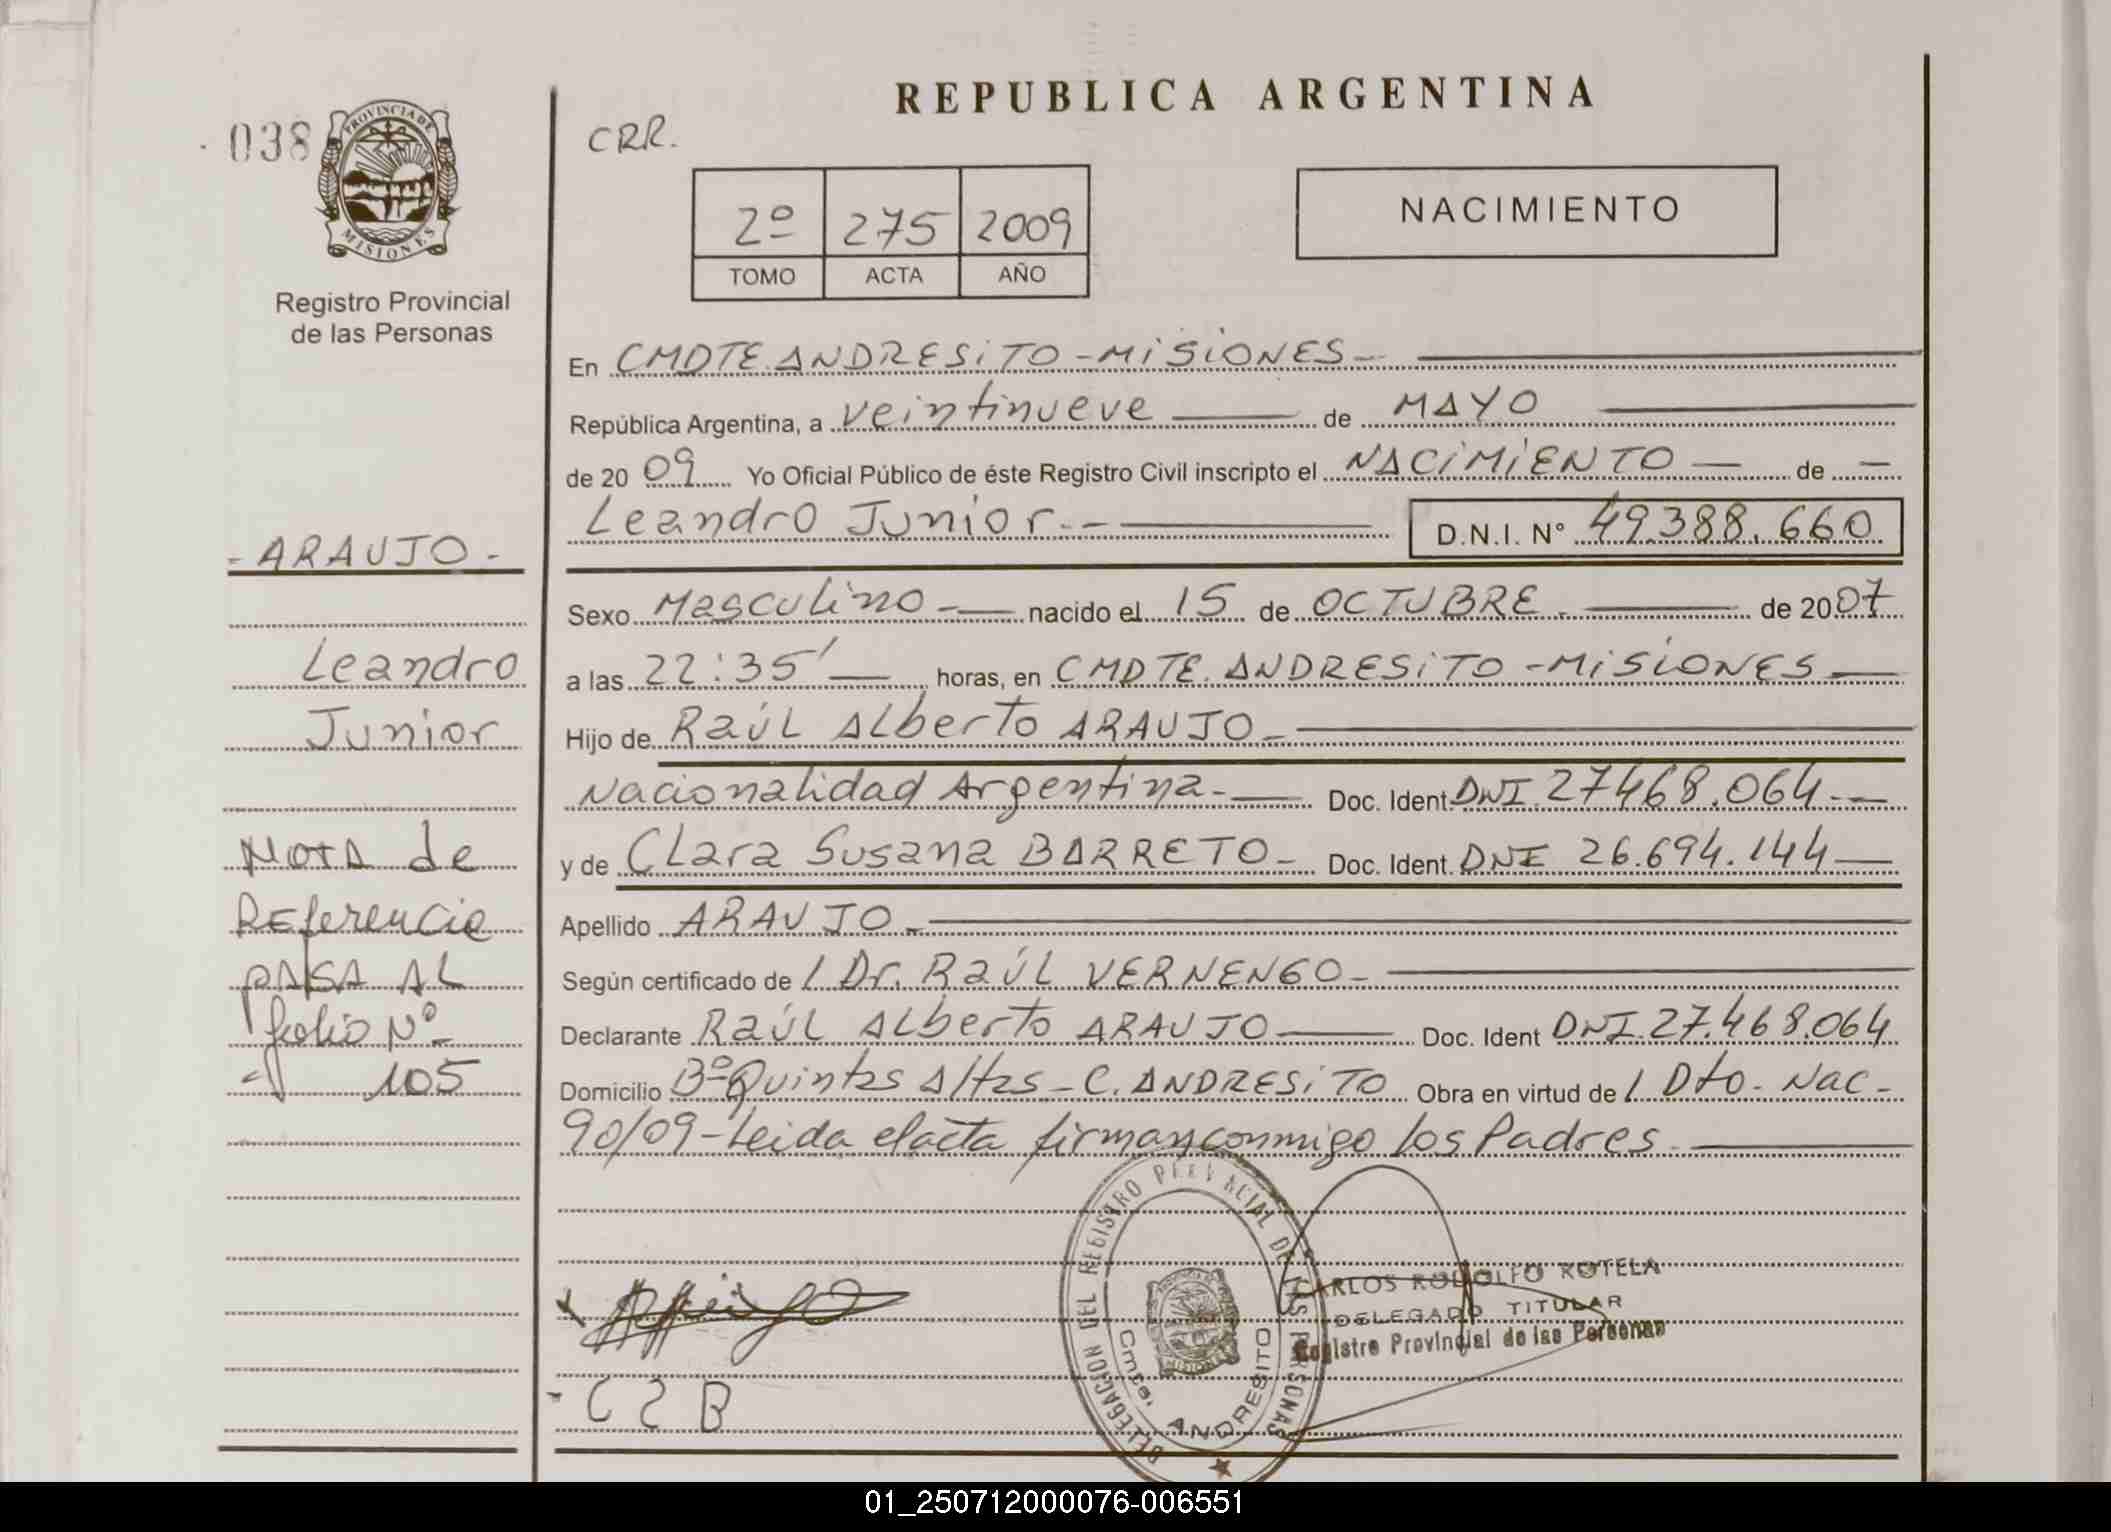 REPUBLICA ARGENTINA
038
PROVINCIA DE
MISIONES
Registro Provincial
de las Personas
CRR.
2º 275 2009
TOMO ACTA AÑO
NACIMIENTO
En CMDTE. ANDRESiTO - MiSiONES -
República Argentina, a veintinueve de MAYO
de 20 09 Yo Oficial Público de éste Registro Civil inscripto el NACiMiENTO - de -
Leandro Junior.- D.N.I. N° 49.388.660
- ARAUJO -
Leandro
Junior
Nota de
Referencia
PASA AL
folio Nº
105
Sexo Masculino - nacido el 15 de OCTUBRE. de 2007
a las 22:35' horas, en CMDTE. ANDRESiTO - MiSiONES
Hijo de Raúl Alberto ARAUJO -
Nacionalidad Argentina - Doc. Ident. DNI. 27.468.064 -
y de Clara Susana BARRETO - Doc. Ident. DNI 26.694.144
Apellido ARAUJO -
Según certificado de / Dr. Raúl VERNENGO -
Declarante Raúl Alberto ARAUJO Doc. Ident DNI. 27.468.064
Domicilio Bº Quintas Altas - C. ANDRESiTO Obra en virtud de / Dto. Nac -
90/09 - Leida el acta firman conmigo los Padres.
DELEGACION DEL REGISTRO PROVINCIAL DE LAS PERSONAS
Cmte. ANDRESITO
MISIONES
CARLOS RODOLFO KOTELA
DELEGADO TITULAR
Registro Provincial de las Personas
C S B
01_250712000076-006551